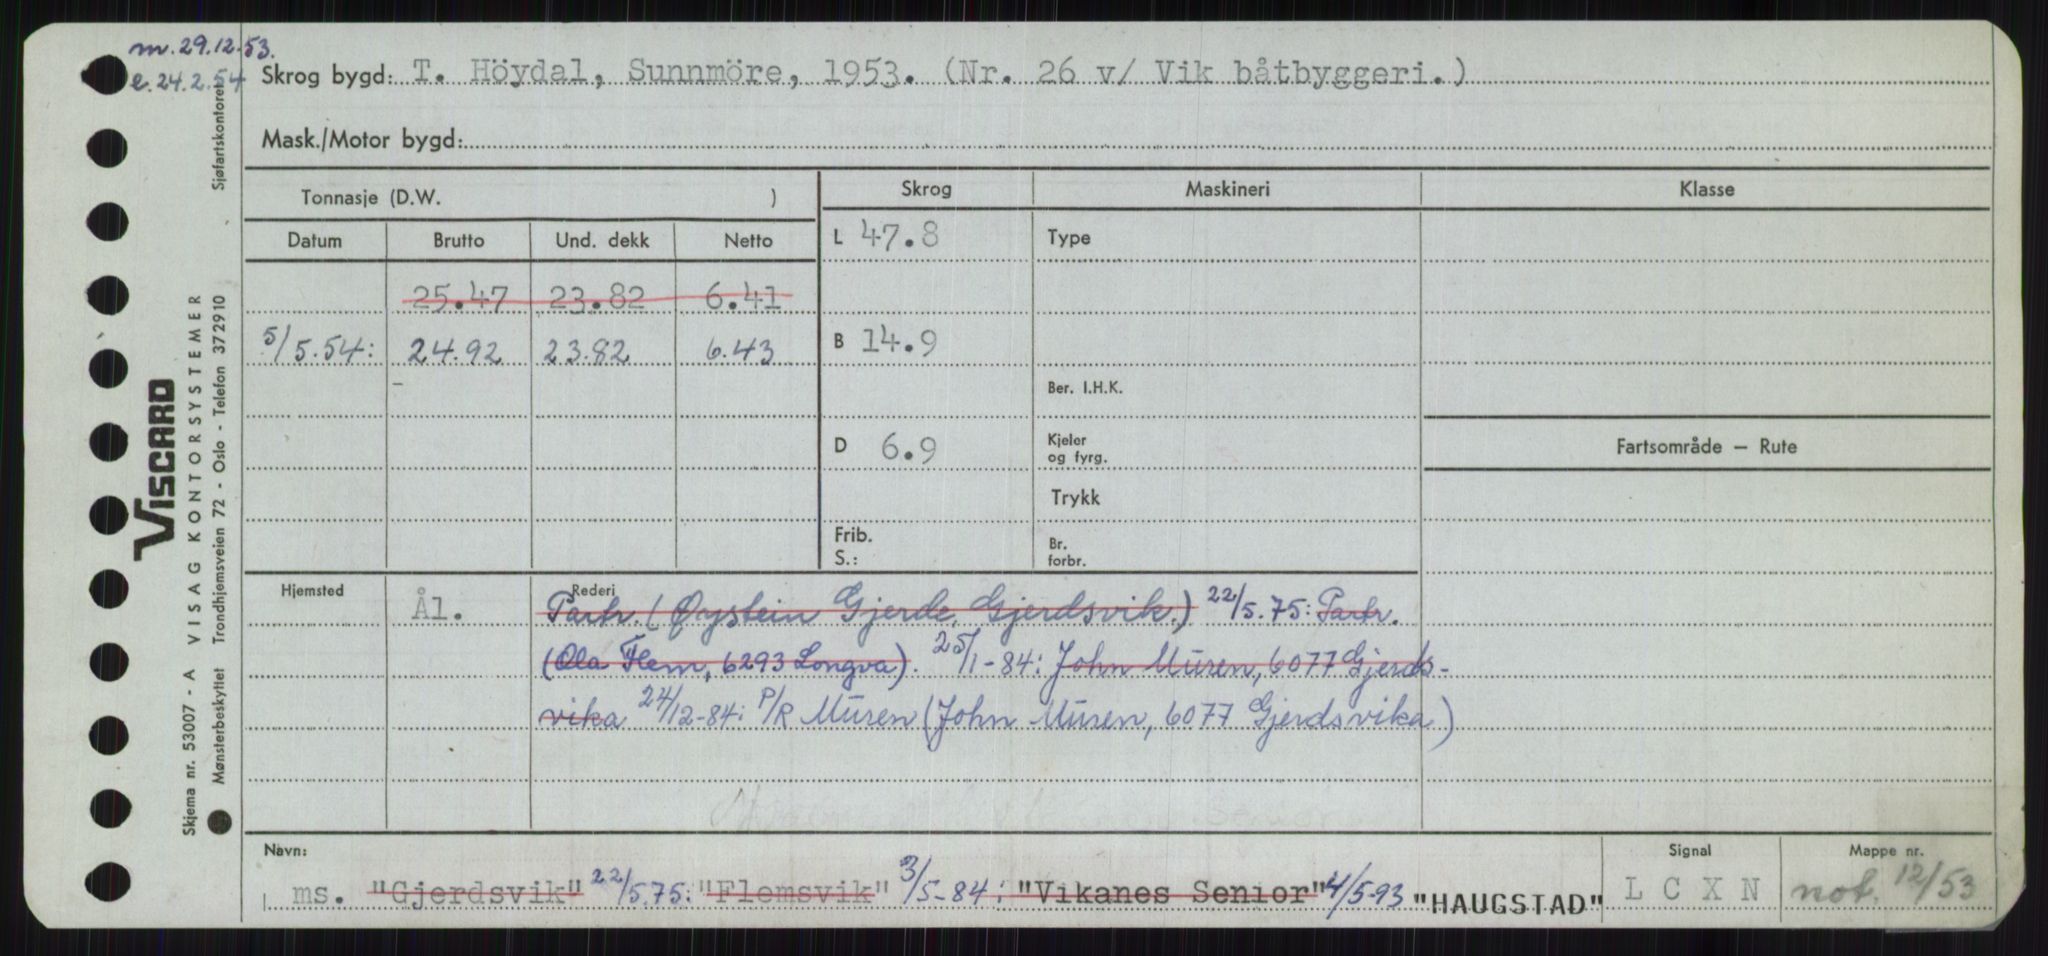 m. 29.12.53.
e. 24.2.54
Sjøfartskontoret
Skrog bygd: T. Höydal, Sunnmöre, 1953. (Nr. 26 v/ Vik båtbyggeri.)
Mask./Motor bygd:
Tonnasje (D.W. )
Skrog Maskineri Klasse
Datum Brutto Und. dekk Netto
L 47.8 Type
25.47 23.82 6.41
5/5.54: 24.92 23.82 6.43
B 14.9
Ber. I.H.K.
D 6.9
Kjeler
og fyrg.
Fartsområde — Rute
Trykk
Frib.
S.:
Br.
forbr.
Hjemsted Ål.
Rederi
Partr. (Øystein Gjerde, Gjerdsvik.) 22/5.75: Partr.
(Ola Flem, 6293 Longva). 25/1-84: John Muren, 6077 Gjerds-
vika 24/12-84: P/R Muren (John Muren, 6077 Gjerdsvika)
Navn: Signal Mappe nr.
ms. "Gjerdsvik" 22/5.75: "Flemsvik" 3/5-84: "Vikanes Senior" 4/5-93 "HAUGSTAD" L C X N not. 12/53
VISCARD
VISAG KONTORSYSTEMER
Skjema nr. 53007 - A
Mønsterbeskyttet Trondhjemsveien 72 - Oslo - Telefon 372910